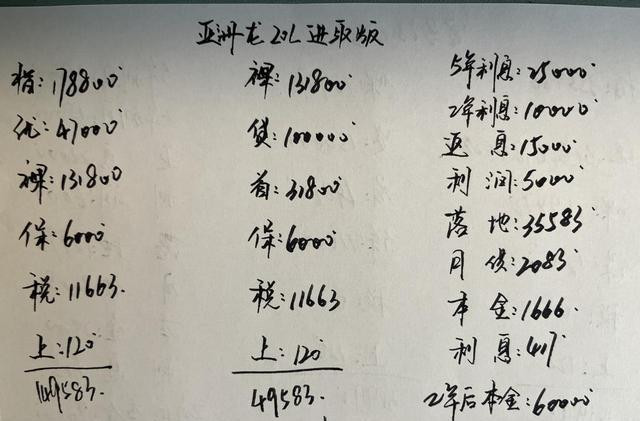 亚洲龙2.0L进取版
指:178800
优:47000
裸:131800
保:6000
税:11663.
上:120
149583.
裸:131800
贷:100000
首:31800
保:6000
税:11663
上:120
49583.
5年利息:25000
2年利息:10000
返息:15000
利润:5000
落地:35583
月供:2083
本金:1666.
利息:417
2年后本金:60000